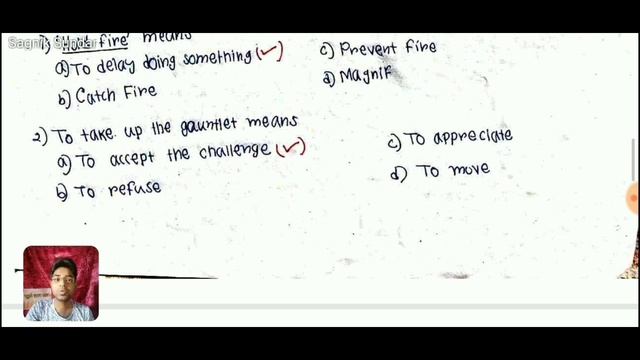 Sagnik Sundar
1) 'Hold fire' means
a) To delay doing something (✓)
b) Catch Fire
c) Prevent fire
d) Magnif
2) To take up the gauntlet means
a) To accept the challenge (✓)
b) To refuse
c) To appreciate
d) To move